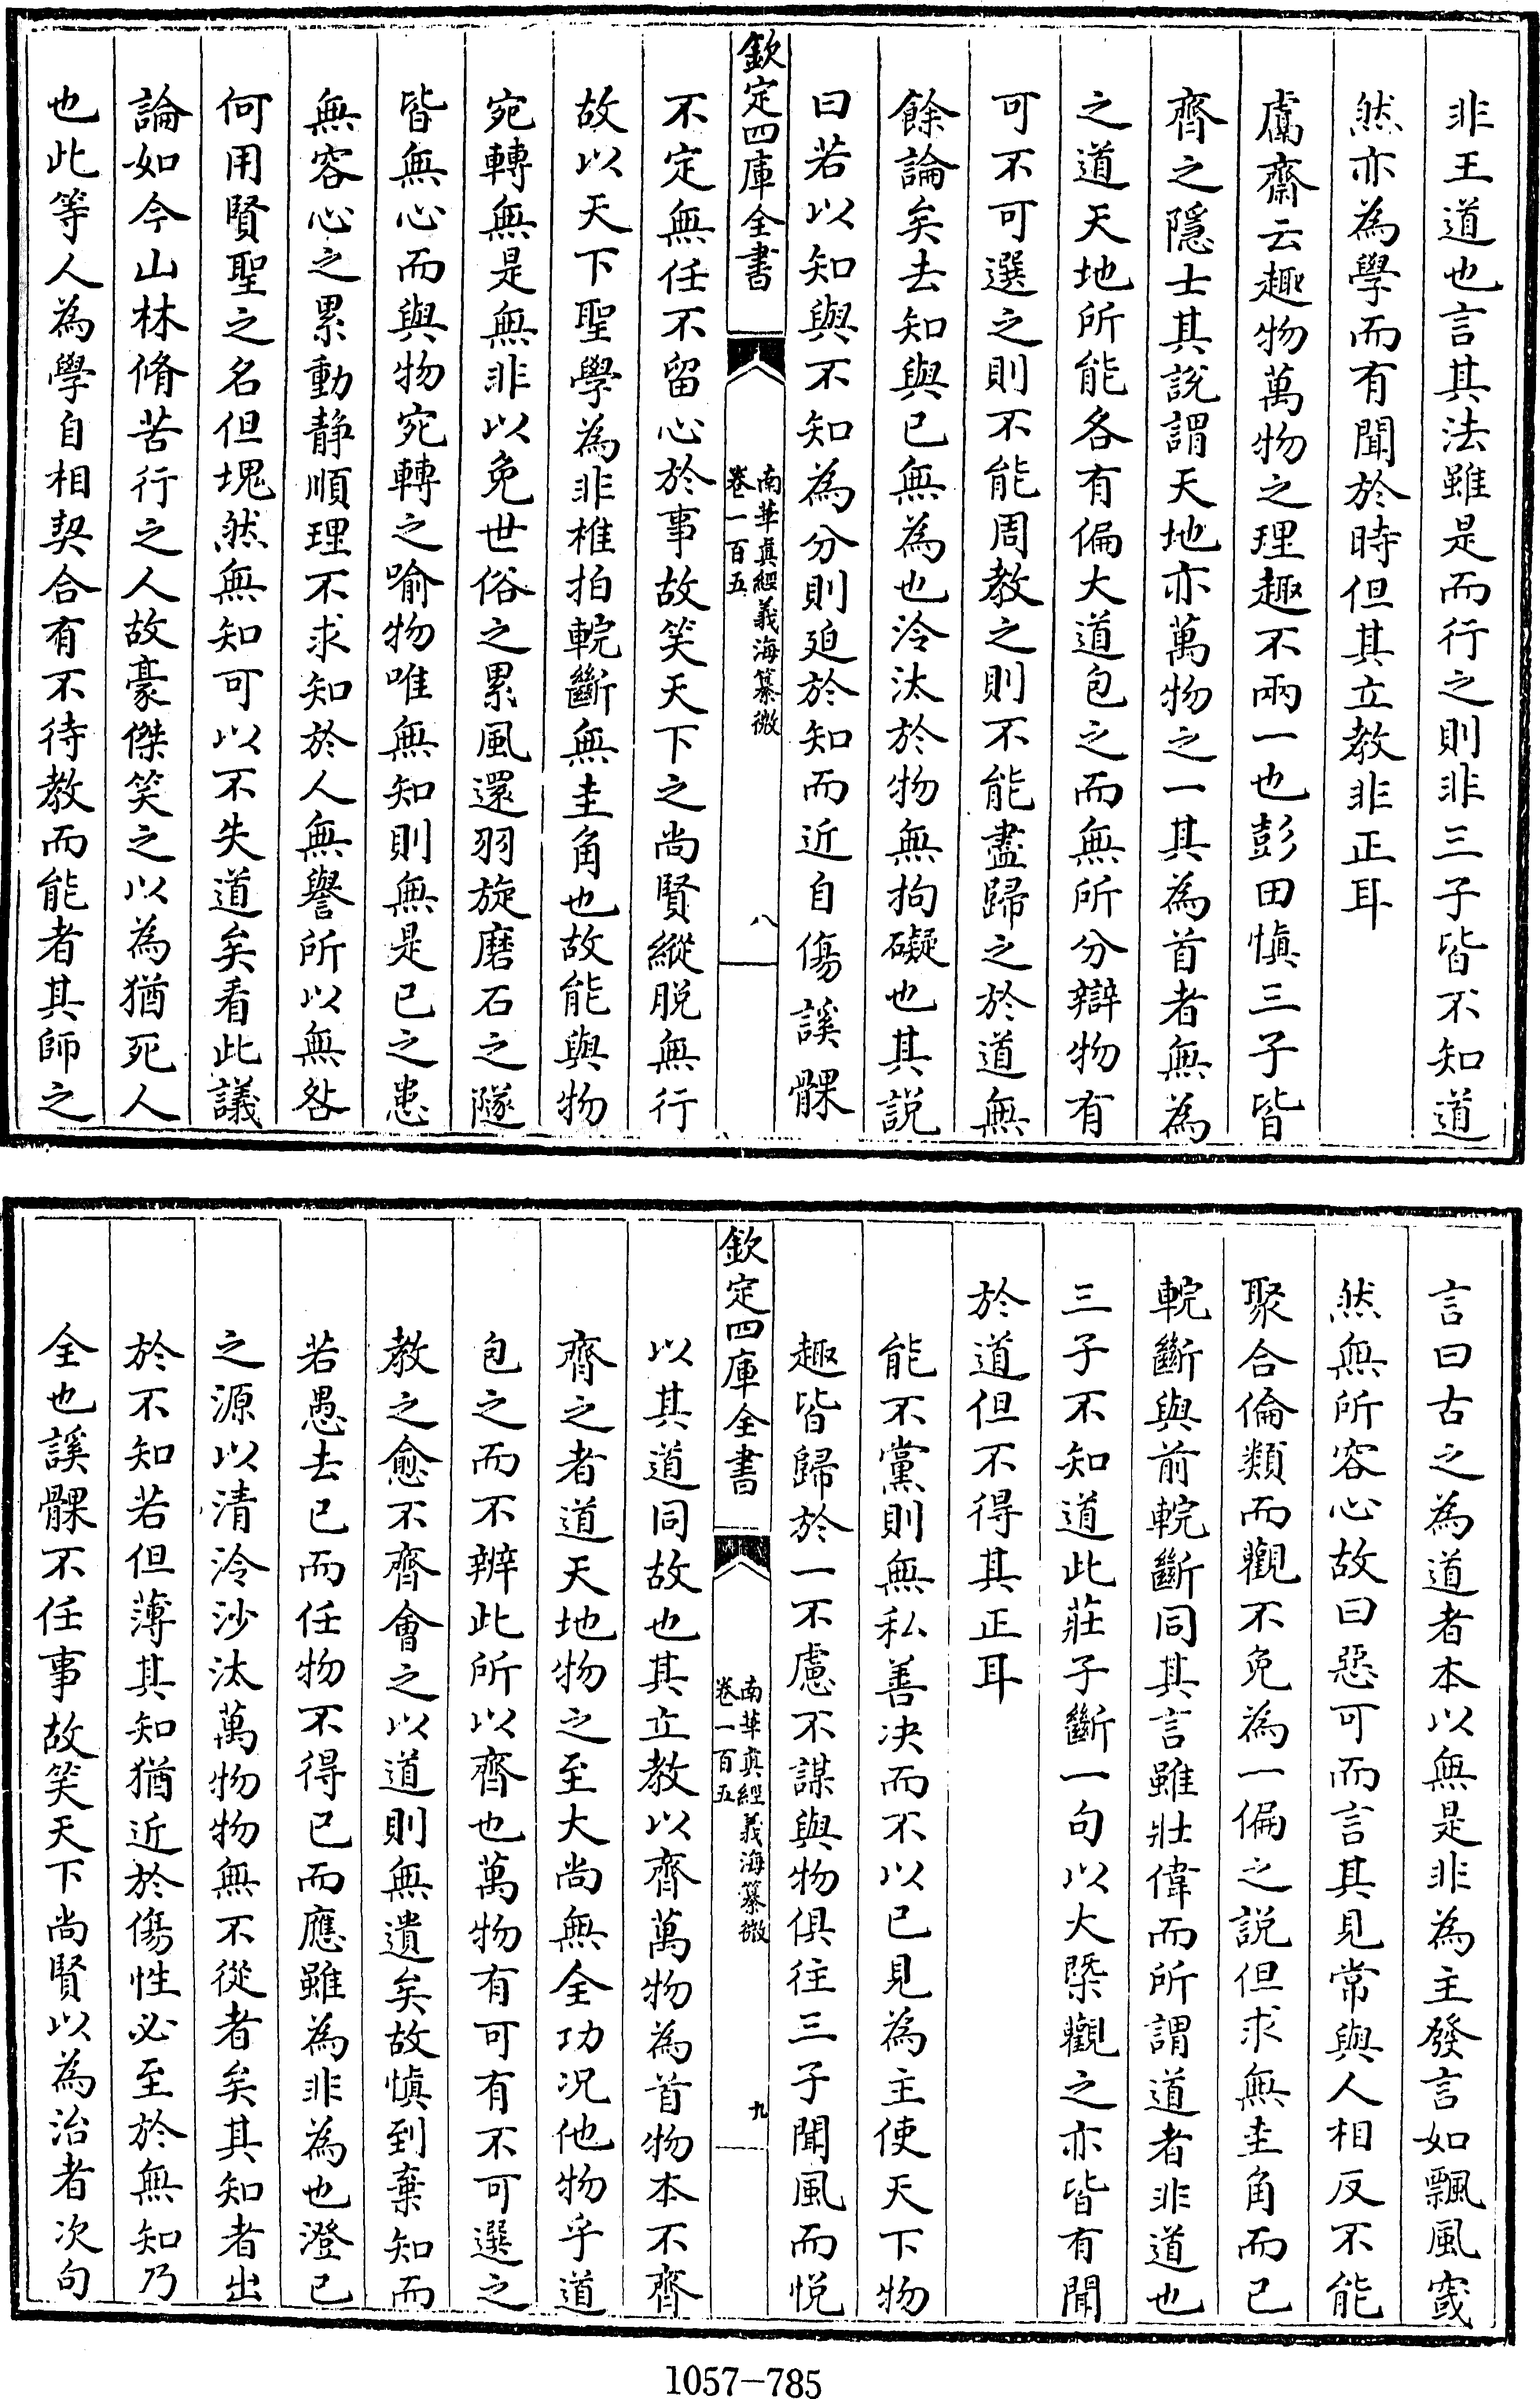 非王道也言其法雖是而行之則非三子皆不知道
然亦為學而有聞於時但其立教非正耳
鬳齋云趣物萬物之理趣不兩一也彭田慎三子皆
齊之隱士其說謂天地亦萬物之一其為首者無為
之道天地所能各有偏大道包之而無所分辯物有
可不可選之則不能周教之則不能盡歸之於道無
餘論矣去知與已無為也泠汰於物無拘礙也其說
曰若以知與不知為分則廹於知而近自傷謑髁
欽定四庫全書
南華真經義海纂微
卷一百五
八
不定無任不留心於事故笑天下之尚賢縱脫無行
故以天下聖學為非椎拍輐斷無圭角也故能與物
宛轉無是無非以免世俗之累風還羽旋磨石之隧
皆無心而與物宛轉之喻物唯無知則無是已之患
無容心之累動静順理不求知於人無譽所以無咎
何用賢聖之名但塊然無知可以不失道矣看此議
論如今山林脩苦行之人故豪傑笑之以為猶死人
也此等人為學自相契合有不待教而能者其師之
言曰古之為道者本以無是非為主發言如飄風窢
然無所容心故曰惡可而言其見常與人相反不能
聚合倫類而觀不免為一偏之說但求無圭角而已
輐斷與前輐斷同其言雖壯偉而所謂道者非道也
三子不知道此莊子斷一句以大槩觀之亦皆有聞
於道但不得其正耳
能不黨則無私善决而不以已見為主使天下物
趣皆歸於一不慮不謀與物俱往三子聞風而悅
欽定四庫全書
南華真經義海纂微
卷一百五
九
以其道同故也其立教以齊萬物為首物本不齊
齊之者道天地物之至大尚無全功况他物乎道
包之而不辨此所以齊也萬物有可有不可選之
教之愈不齊會之以道則無遺矣故慎到棄知而
若愚去已而任物不得已而應雖為非為也澄已
之源以清泠沙汰萬物物無不從者矣其知者出
於不知若但薄其知猶近於傷性必至於無知乃
全也謑髁不任事故笑天下尚賢以為治者次句
1057-785